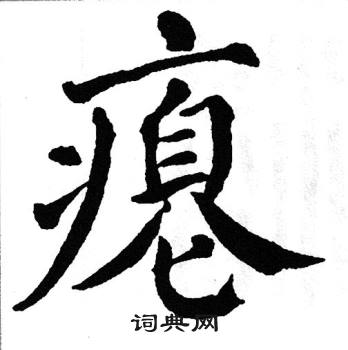 瘪
词典网